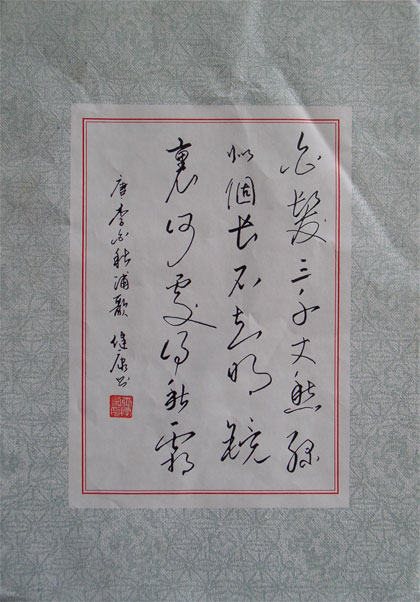 白髮三千丈愁緣
似個長不知明鏡
裏何處得秋霜
唐李白秋浦歌 健康书